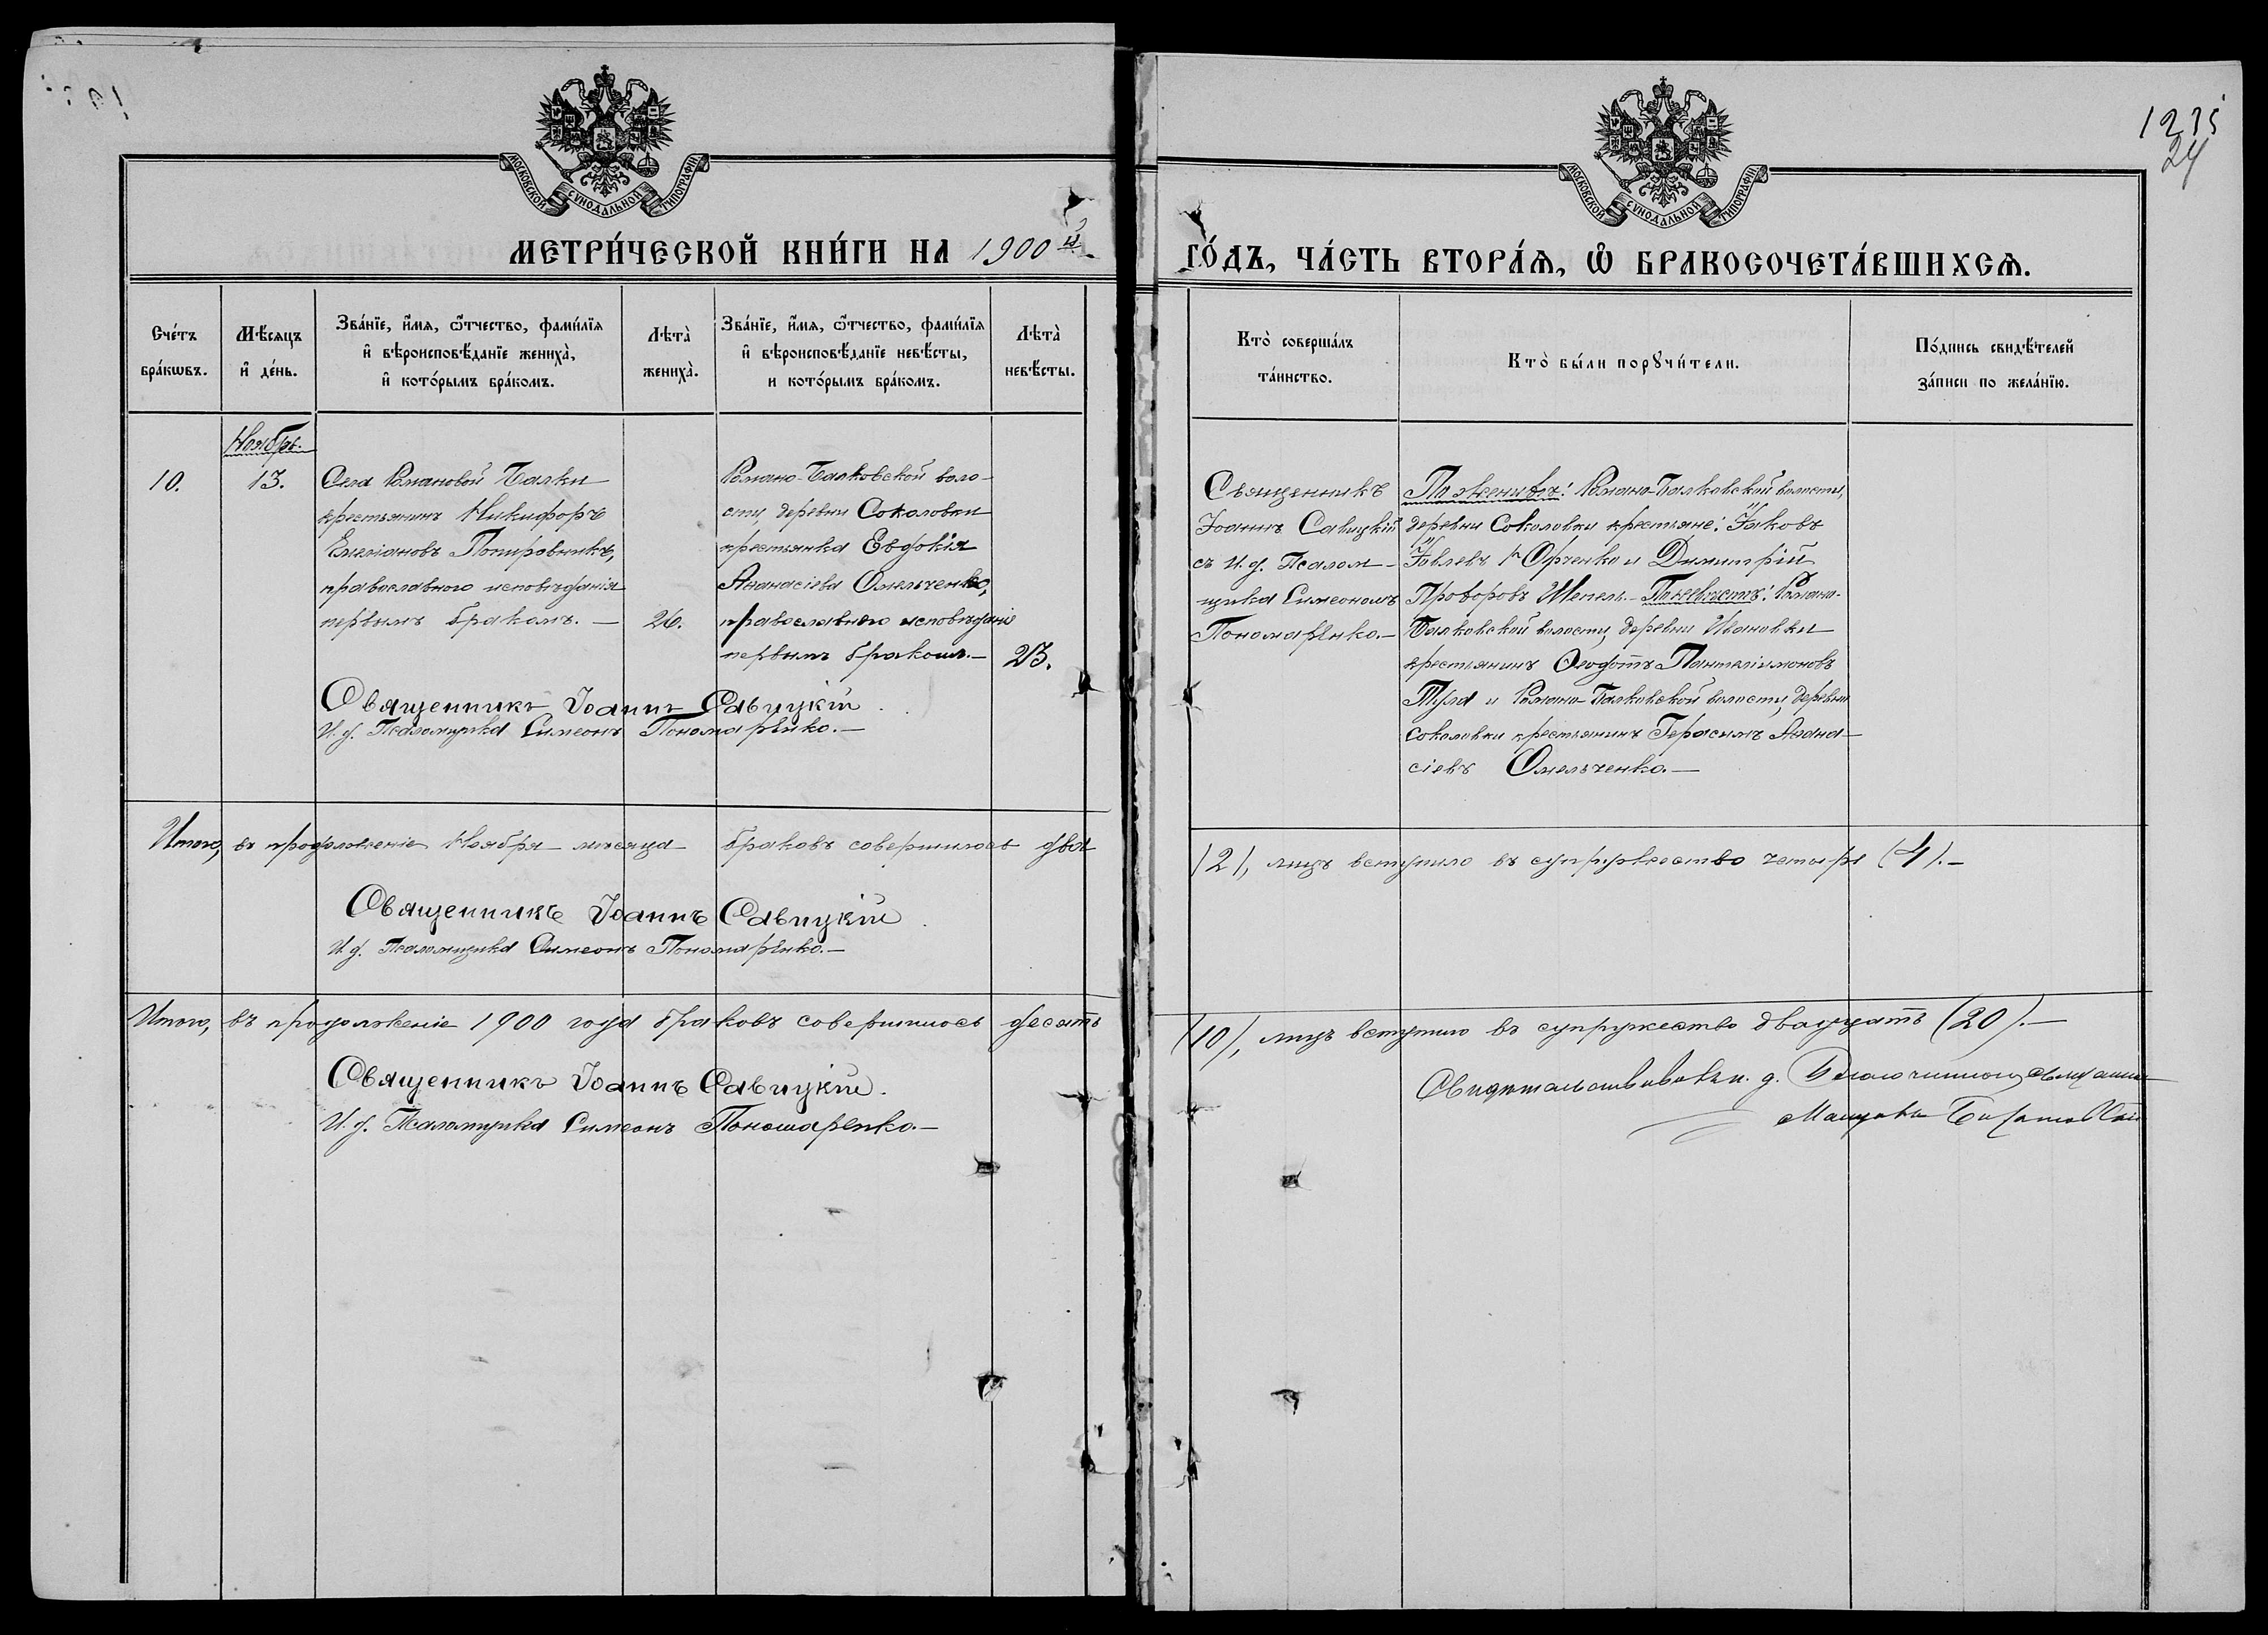 1235
24
МОСКОВСКОЙ СѴНОДАЛЬНОЙ ТИПОГРАФІИ
МОСКОВСКОЙ СѴНОДАЛЬНОЙ ТИПОГРАФІИ
МЕТРИ́ЧЕСКОЙ КНИ́ГИ НА 1900й
ГО́ДЪ, ЧА́СТЬ ВТОРА́Ѧ, Ѽ БРАКОСОЧЕТА́ВШИХСѦ.
Сче́тъ
бра́кѡвъ.
Мѣ́сѧцъ
и҆ де́нь.
Зва́нїе, и҆́мѧ, ѻ҆́тчество, фами́лїѧ
и҆ вѣроисповѣ́данїе жениха̀,
и҆ кото́рымъ бра́комъ.
Лѣта̀
жениха̀.
Зва́нїе, и҆́мѧ, ѻ҆́тчество, фами́лїѧ
и҆ вѣроисповѣ́данїе невѣ́сты,
и кото́рымъ бра́комъ.
Лѣта̀
невѣ́сты.
Кто̀ соверша́лъ
та́инство.
Кто̀ бы́ли порꙋчи́тели.
По́дпись свидѣ́телей
за́писи по жела́нїю.
Ноябрь.
10.
13.
Села Романовой Балки
крестьянинъ Никифоръ
Емеліановъ
православного исповѣданія
первымъ бракомъ. —
26.
Романо-Балковской воло-
сти, деревни Соколовки
крестьянка Евдокія
Аѳанасіева Омельченко,
православного исповѣданія
первымъ бракомъ. —
23.
Священникъ
Іоаннъ Савицкій
съ И. д. Псалом-
щика Симеономъ
Пономаренко. —
По женихѣ: Романо-Балковской волости,
деревни Соколовки крестьяне: Іаковъ
и Димитрій
Прохоровъ Шепель. — По невѣстѣ: Романо-
Балковской волости, деревни Ивановки
крестьянинъ Ѳеодотъ Пантелеимоновъ
и Романо-Балковской волости, деревни
Соколовки крестьянинъ Герасимъ Аѳана-
сіевъ Омельченко. —
Священникъ Іоаннъ Савицкій
И. д. Псаломщика Симеонъ Пономаренко. —
Итого, въ продолженіе Ноября мѣсяца браковъ совершилось два
(2), лицъ вступило въ супружество четыре (4). —
Священникъ Іоаннъ Савицкій
И. д. Псаломщика Симеонъ Пономаренко. —
Итого, въ продолженіе 1900 года браковъ совершилось десять
(10), лицъ вступило въ супружество двадцать (20). —
Священникъ Іоаннъ Савицкій.
И. д. Псаломщика Симеонъ Пономаренко. —